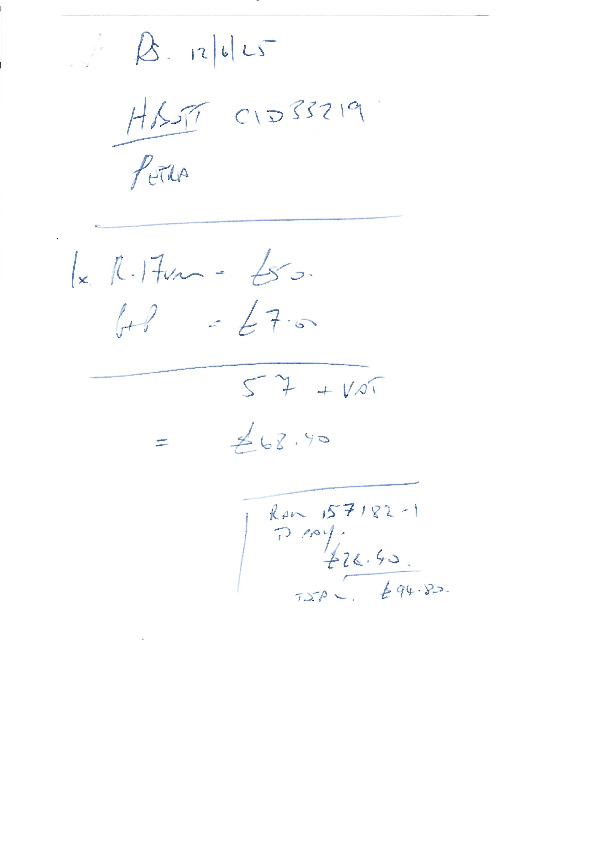 DS. 12/6/25
HBOTT C1D33219
PETRA
1x R.17 = £50.
P+P = £7.00
57 + VAT
= £68.40
RAN 157182-1
TO PAY.
£26.40.
TOTAL. £94.80.